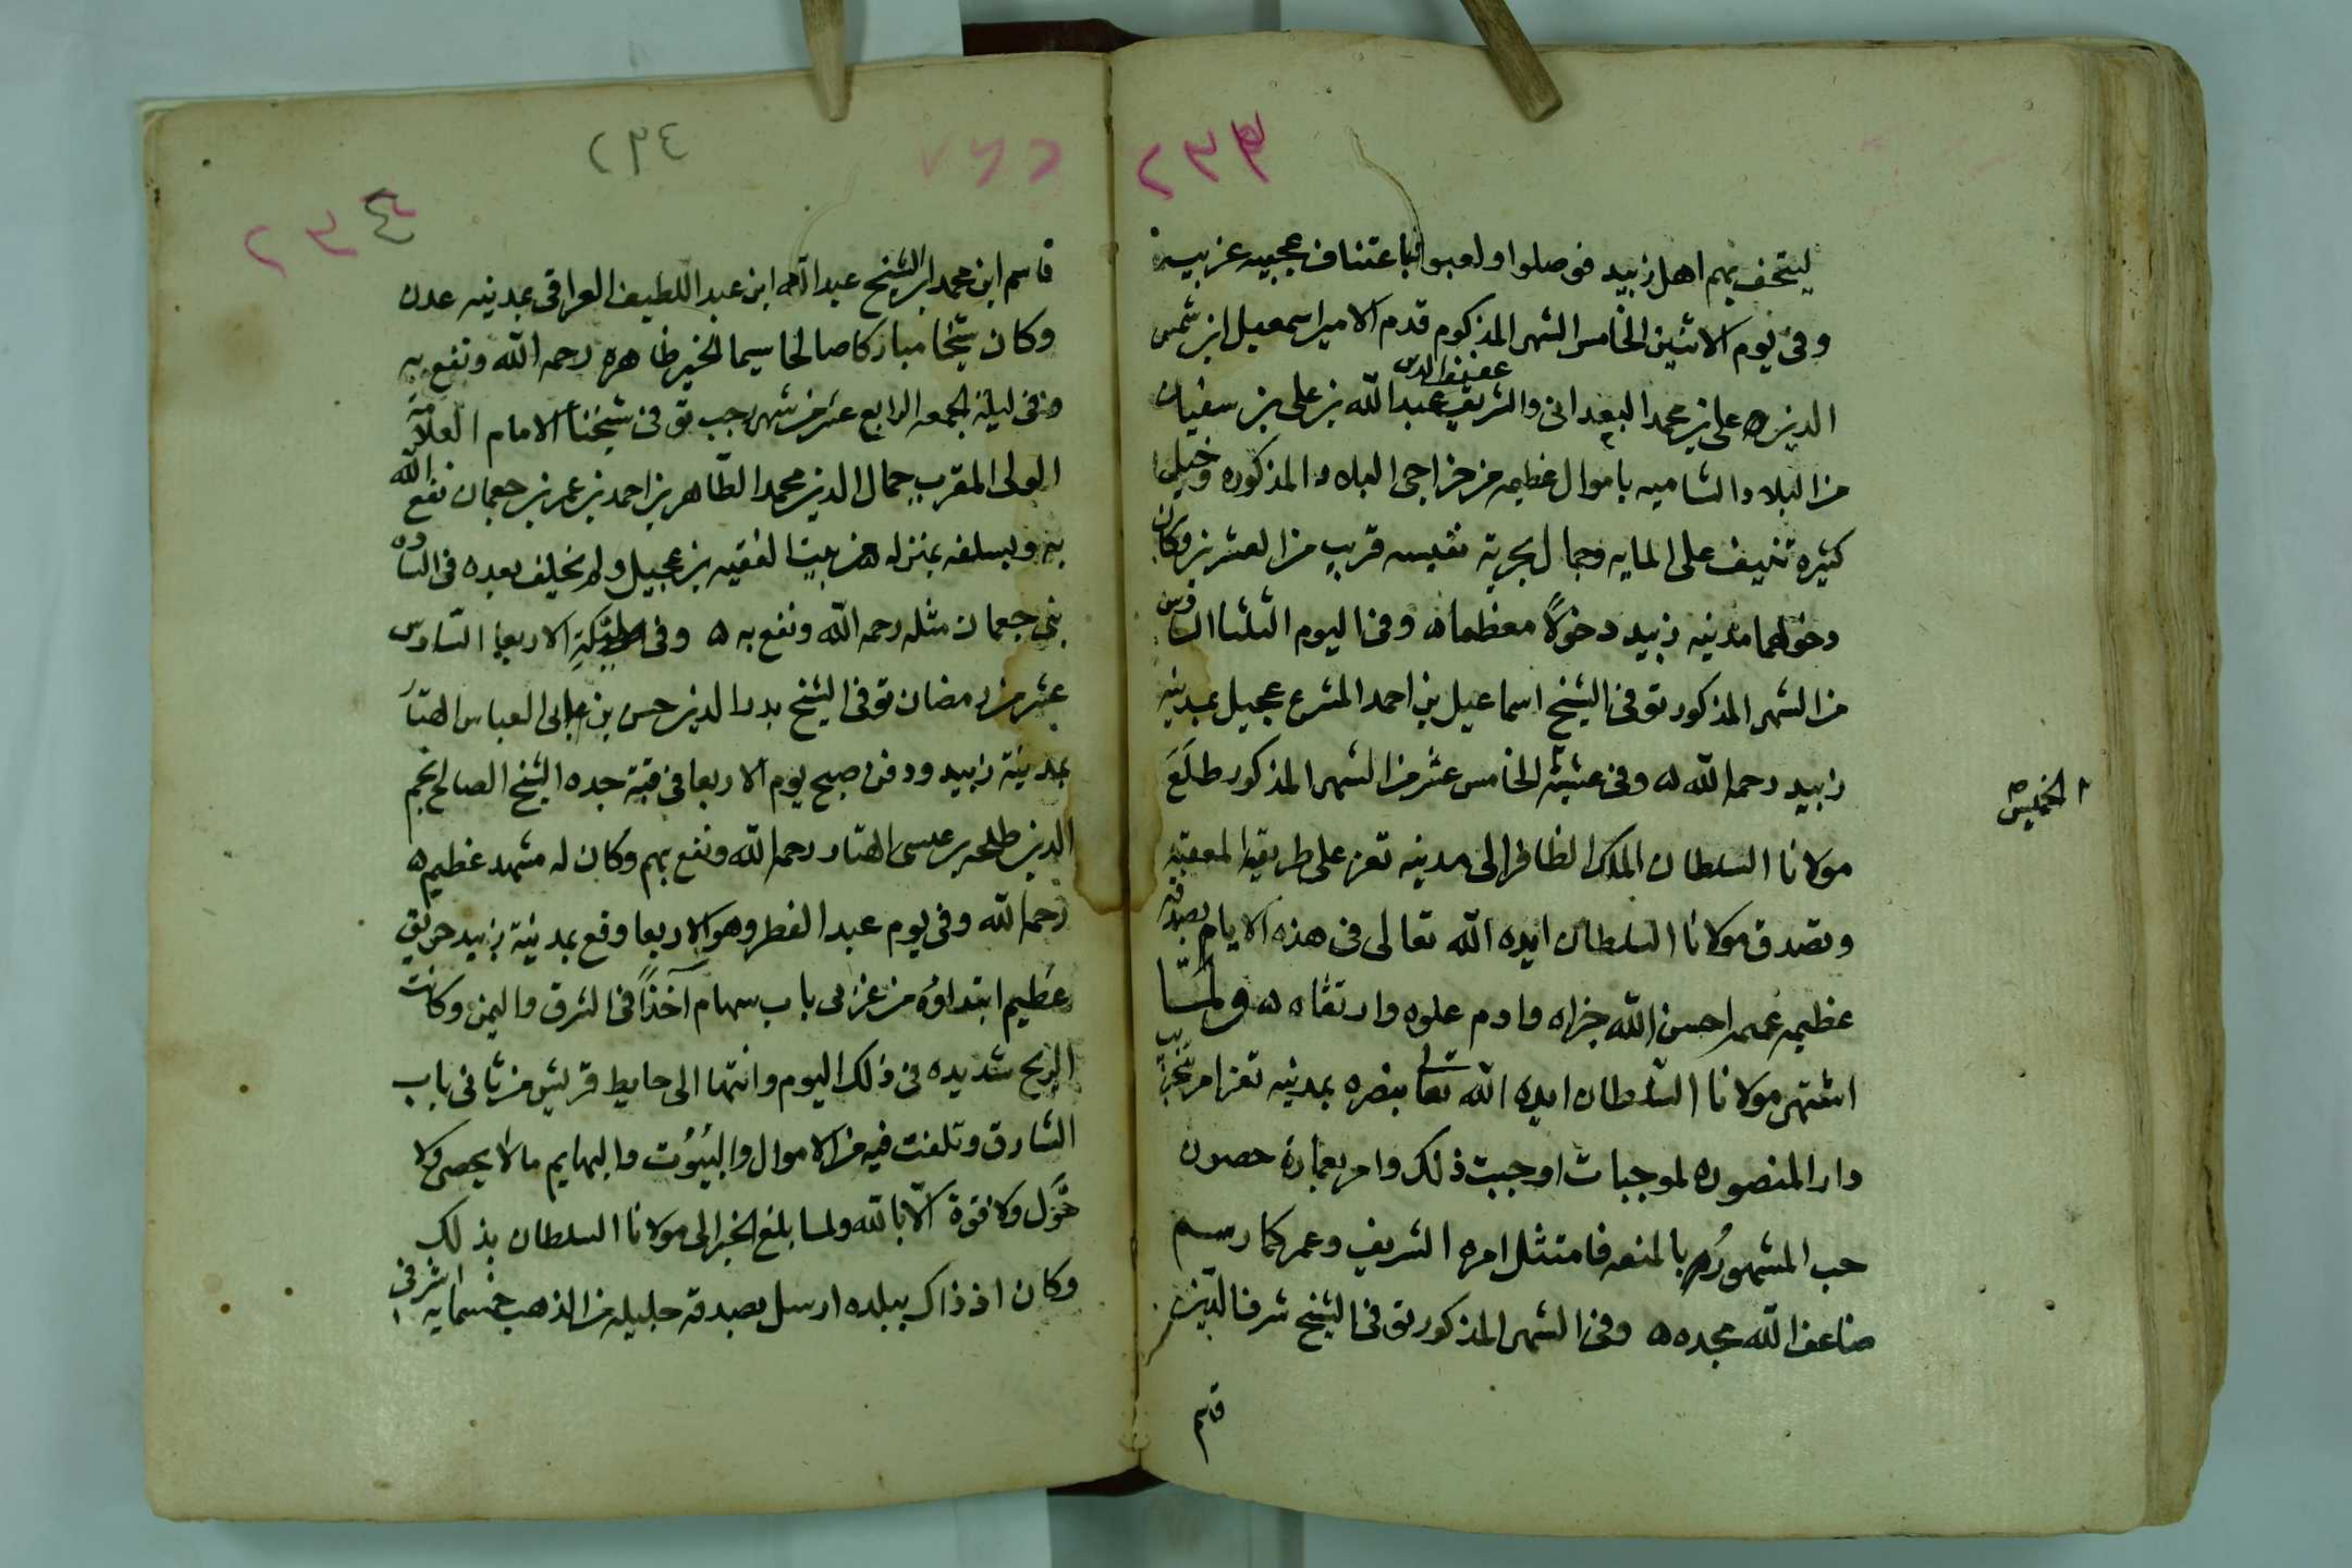 ٢٣٣
ليتحف بهم اهل زبيد فوصلوا ولعبوا عجيبه غريبة
وفي يوم الاثنين الخامس الشهر المذكوم قدم الامير اسمعيل ابن شمس
عفيف الدين
الدين علي بن محمد البعداني والشريف عبدالله بن علي بن سفيان
من البلاد الشاميه باموال عظيمه من خراجي البلاد المذكوره وخيل
كثيره تنيف على المايه وجمال بجرية نفيسه قريب من العشرين وكان
دخولهما مدينه زبيد دخولاً معظما ه وفي اليوم الثلثا السادس
من الشهر المذكور توفي الشيخ اسماعيل بن احمد المشرع عجيل بمدينه
زبيد رحمه الله ه وفي عشية الخامس عشر من الشهر المذكور طلَعَ
الخميس
مولانا السلطان الملك الظافر الى مدينه تعز على طريقه المعقبه
وتصدق مولانا السلطان ايده الله تعالى في هذه الايام بصدقه
عظيمه عممه احسن الله جزاه وادم علوه وارتقاه ه ولمّا
اشتهر مولانا السلطان ايده الله تعالى بنصره بمدينه تعز امر بتخريب
دار المنصوره لموجبات اوجبت ذلك وامر بعمارة حصون
حب المشهوره بالمنعه فامتثل امره الشريف وعمر كما رسم
ضاعف الله مجده ه وفي الشهر المذكور توفي الشيخ شرف الدين
قاسم
٢٣٤
٢٣٤
قاسم ابن محمد ابن الشيخ عبدالله ابن عبد اللطيف العراقي بمدينه عدن
وكان شيخا مباركا صالحا سيما الخير ظاهره رحمه الله ونفع به
وفي ليلة الجمعه الرابع عشر من شهر رجب توفي شيخنا الامام العلامة
الولى المقرب جمال الدين محمد الطاهر بن احمد بن عمر بن جعمان نفع الله
به وبسلفه بمنزله من بيت الفقيه بن عجيل ولم يخلف بعده في الساده
بني جعمان مثله رحمه الله ونفع به ه وفي ليلة الاربعا السادس
عشر من رمضان توفي الشيخ بدر الدين حسن بن ابي العباس الهتار
بمدينة زبيد ودفن صبح يوم الاربعا في قبة جده الشيخ الصالح نجم
الدين طلحه بن عيسى الهتار رحمه الله ونفع بهم وكان له مشهد عظيم ه
رحمه الله وفي يوم عيد الفطر وهو الاربعا وقع بمدينة زبيد حريق
عظيم ابتداؤه من غربي باب سهام آخذاً في الشرق واليمن وكانت
الريح شديده في ذلك اليوم وانتها الى حايط قريش من ثاني باب
الشارق وتلفت فيه من الاموال والبُيُوت والبهايم مالا يحصى ولا
حول ولا قوة الا بالله ولما بلغ الخبر الى مولانا السلطان بذلك
وكان اذ ذاك ببلده ارسل بصدقه جليله من الذهب خمسمايه اشرفي